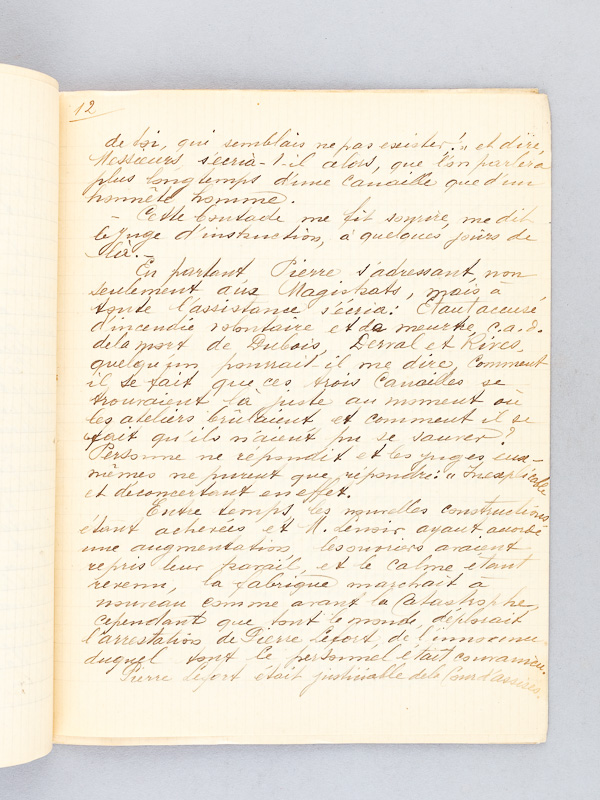 12
de toi, qui semblais ne pas exister!" et dire,
Messieurs s'écria-t-il alors, que l'on parlera
plus longtemps d'une Canaille que d'un
honnête homme.
- Cette boutade me fit sourire, me dit
le Juge d'instruction, à quelques jours de
là. -
En partant Pierre s'adressant non
seulement aux Magistrats, mais à
toute l'assistance s'écria: Etant accusé
d'incendie volontaire et de meurtre, c.a.d.
de la mort de Dubois, Derval et Rives,
quelqu'un pourrait-il me dire comment
il se fait que ces trois Canailles se
trouvaient là juste au moment où
les ateliers brûlaient et comment il se
fait qu'ils n'aient pu se sauver?
Personne ne répondit et les juges eux-
mêmes ne purent que répondre: "Inexplicable
et déconcertant en effet.
Entre temps, les nouvelles constructions
étant achevées et M. Lenoir ayant accordé
une augmentation, les ouvriers avaient
repris leur travail, et le calme étant
revenu, la fabrique marchait à
nouveau comme avant la Catastrophe,
cependant que tout le monde, déplorait
l'arrestation de Pierre Lefort, de l'innocence
duquel tout le personnel était convaincu.
Pierre Lefort était justiciable de la Cour d'assises.